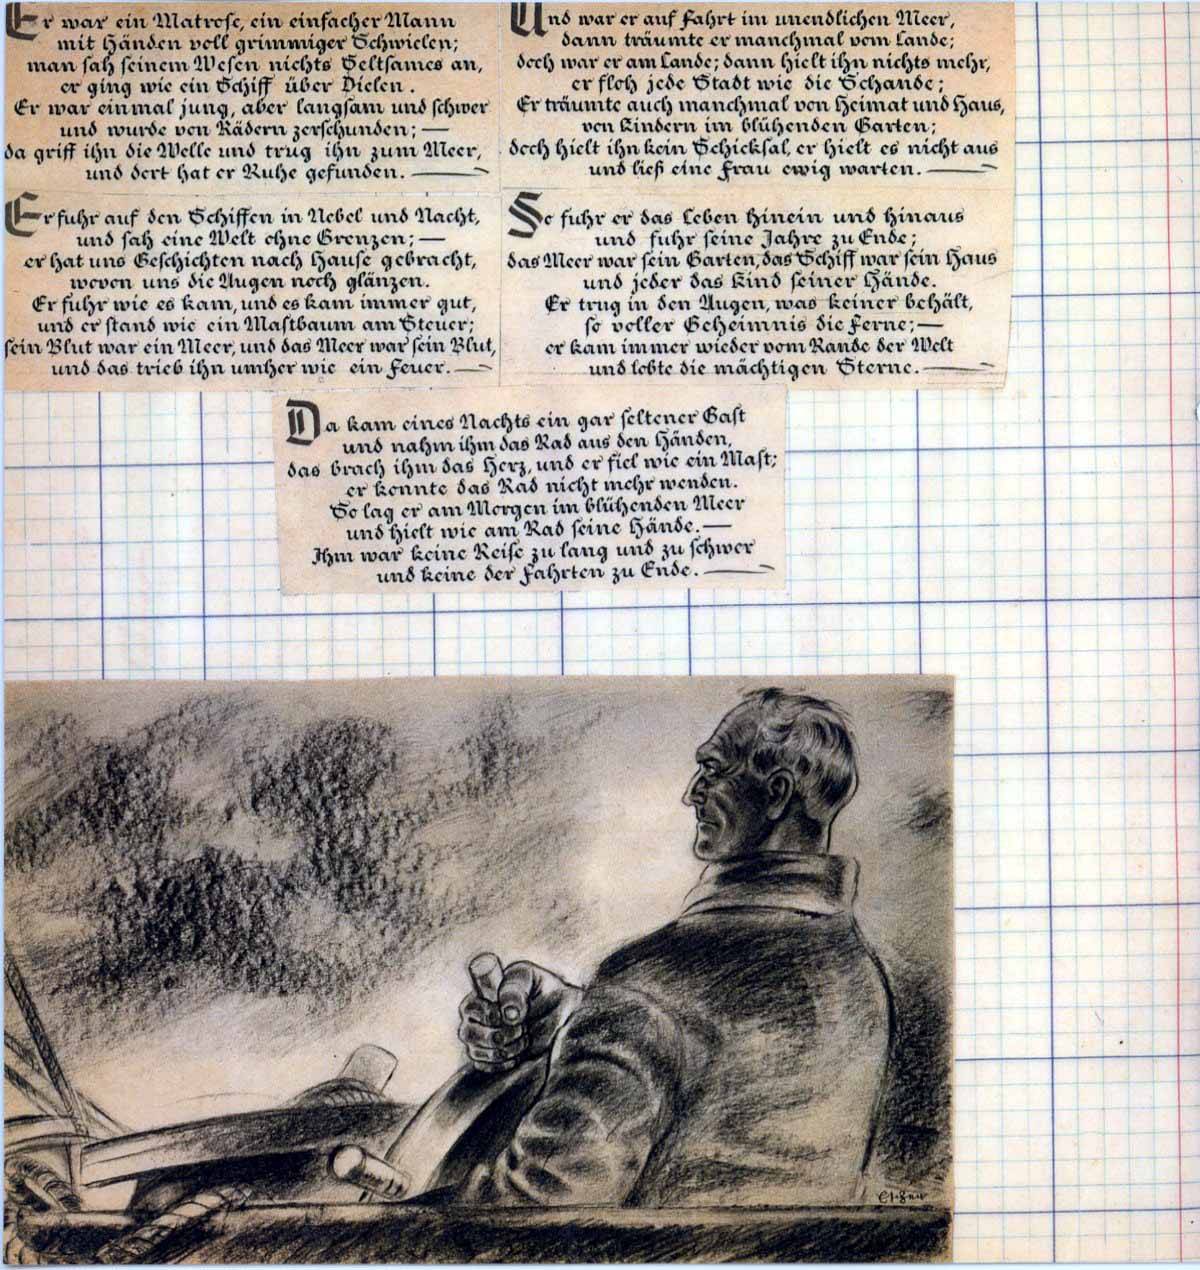 Er war ein Matrose, ein einfacher Mann
mit Händen voll grimmiger Schwielen;
man sah seinem Wesen nichts Seltsames an,
er ging wie ein Schiff über Dielen.
Er war einmal jung, aber langsam und schwer
und wurde von Rädern zerschunden; —
da griff ihn die Welle und trug ihn zum Meer,
und dort hat er Ruhe gefunden. —
Er fuhr auf den Schiffen in Nebel und Nacht,
und sah eine Welt ohne Grenzen; —
er hat uns Geschichten nach Hause gebracht,
wovon uns die Augen noch glänzen.
Er fuhr wie es kam, und es kam immer gut,
und er stand wie ein Mastbaum am Steuer;
sein Blut war ein Meer, und das Meer war sein Blut,
und das trieb ihn umher wie ein Feuer. —
Und war er auf Fahrt im unendlichen Meer,
dann träumte er manchmal vom Lande;
doch war er am Lande; dann hielt ihn nichts mehr,
er floh jede Stadt wie die Schande;
Er träumte auch manchmal von Heimat und Haus,
von Kindern im blühenden Garten;
doch hielt ihn kein Schicksal, er hielt es nicht aus
und ließ eine Frau ewig warten. —
So fuhr er das Leben hinein und hinaus
und fuhr seine Jahre zu Ende;
das Meer war sein Garten, das Schiff war sein Haus
und jeder das Kind seiner Hände.
Er trug in den Augen, was keiner behält,
so voller Geheimnis die Ferne; —
er kam immer wieder vom Rande der Welt
und lebte die mächtigen Sterne. —
Da kam eines Nachts ein gar seltener Gast
und nahm ihm das Rad aus den Händen,
das brach ihm das Herz, und er fiel wie ein Mast;
er konnte das Rad nicht mehr wenden.
So lag er am Morgen im blühenden Meer
und hielt wie am Rad seine Hände. —
Ihm war keine Reise zu lang und zu schwer
und keine der Fahrten zu Ende. —